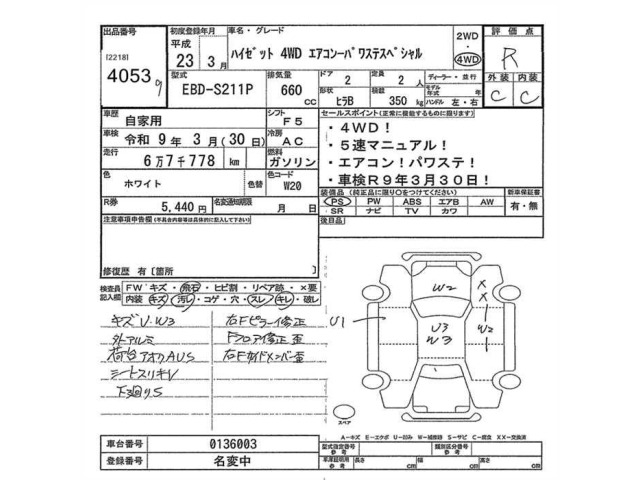 出品番号 初度登録年月 車名・グレード 2WD 評価点
[2218] 平成 23 年 3 月 ハイゼット 4WD エアコンーパワステスペシャル 4WD R
4053 9
型式 排気量 ドア 定員 ディーラー・並行 外装 内装
EBD-S211P 660 CC 2 2 人 モデル年式 年 C C
形状 ヒラB 積載 350 kg ハンドル 左・右
車歴 自家用 シフト F5 セールスポイント(正常に機能するものに限ります)
車検 令和 9 年 3 月(30 日) 冷房 AC ・4WD!
走行 6 万 7 千 778 km 燃料 ガソリン ・5速マニュアル!
・エアコン!パワステ!
色 ホワイト 色替 色コード W20 ・車検R9年3月30日!
R券 5,440 円 名変通知期限 月 日 装備品(純正品に限り○をつけてください) 新車保証書
PS PW ABS エアB AW 有・無
SR ナビ TV カワ
注意事項申告欄(不具合内容は具体的に記入して下さい) 後日品
修復歴 有[箇所 ]
検査員記入欄 FW キズ・飛石・ヒビ割・リペア跡・×要
内装 キズ・汚レ・コゲ・穴・スレ・キレ・破レ
キズU・W3 右Fピラー修正
外アルミ Fフロア修正 歪
荷台アオリAUS 右Fサイドメンバー歪
シートスリキレ
下回りS
W2
X
X
U1
U3
W3
W2
スペア
A−キズ E−エクボ U−凹み W−補修跡 S−サビ C−腐食 XX−交換済
車台番号 0136003 型式指定番号 参考 類別区分番号 参考
登録番号 名変中 車庫証明用 参考 長さ cm 幅 cm 高さ cm